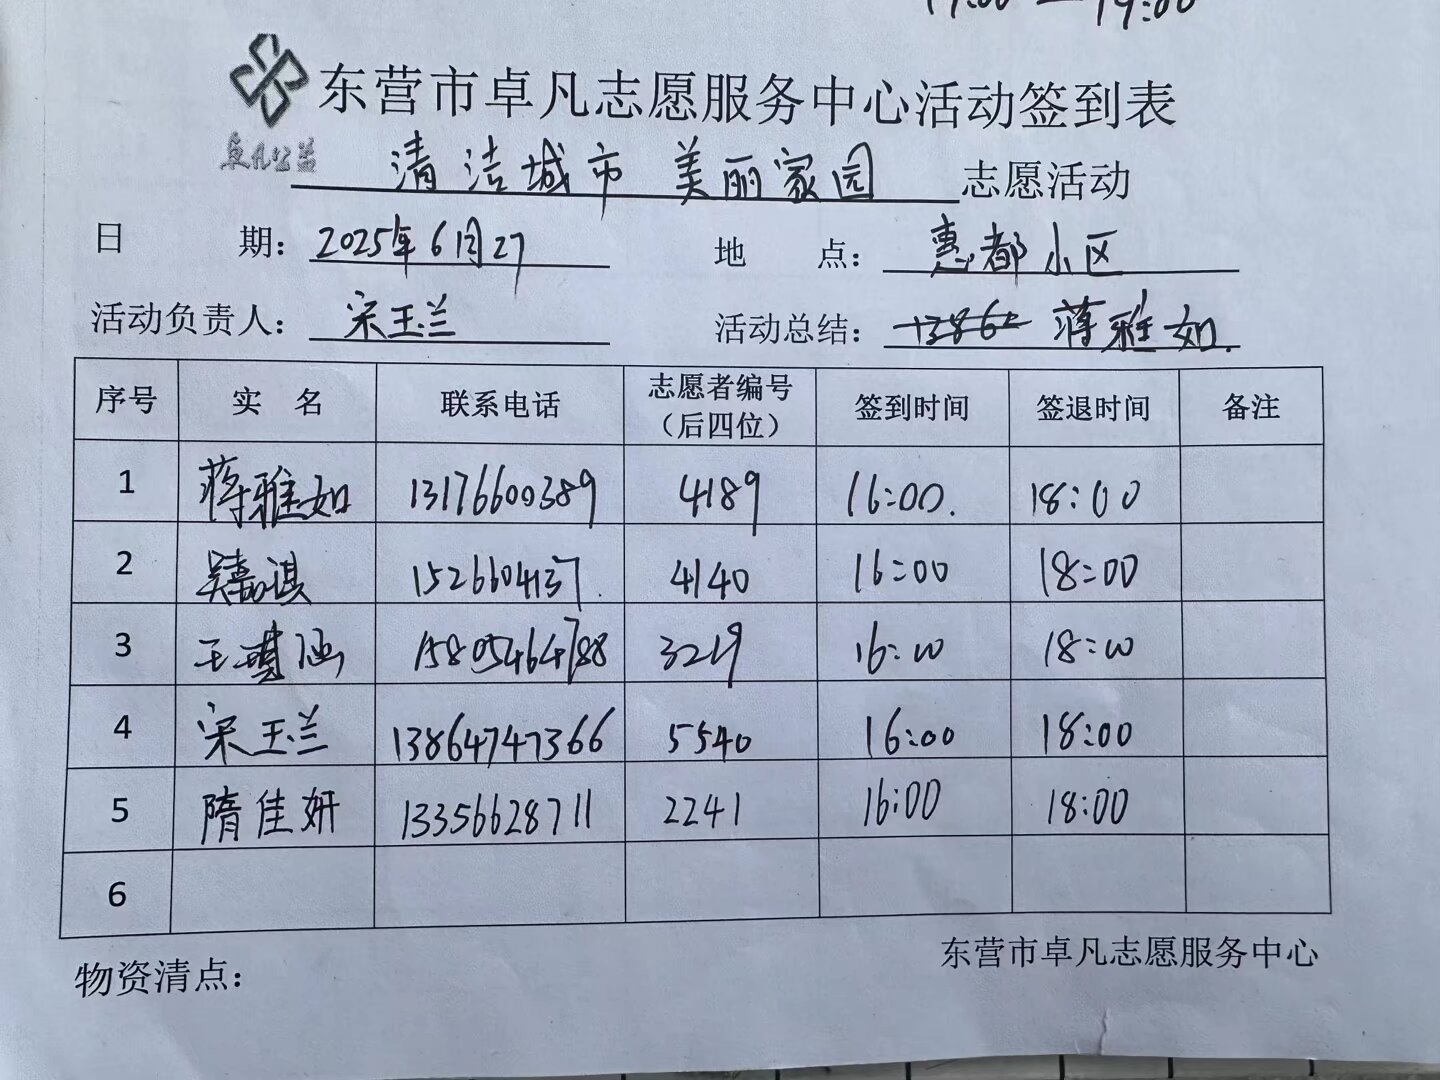 东营市卓凡志愿服务中心活动签到表
卓凡公益
清洁城市 美丽家园 志愿活动
日 期: 2025年6月27 地 点: 惠都小区
活动负责人: 宋玉兰 活动总结: 蒋雅如.
序号 实 名 联系电话 志愿者编号（后四位） 签到时间 签退时间 备注
1 蒋雅如 13176600389 4189 16:00. 18:00
2 吴嘉淇 1526604137 4140 16:00 18:00
3 王 涵 15805464788 3219 16:00 18:00
4 宋玉兰 13864747366 5540 16:00 18:00
5 隋佳妍 13356628711 2241 16:00 18:00
6
物资清点: 东营市卓凡志愿服务中心